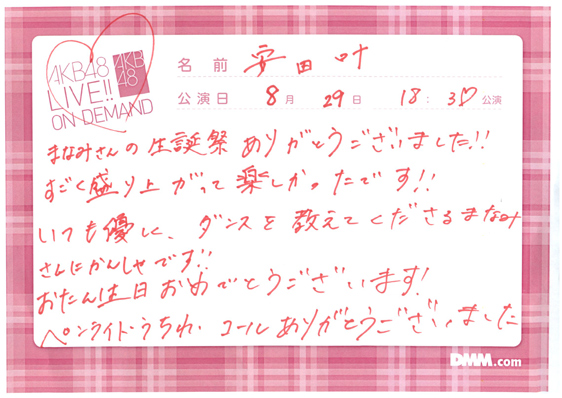 AKB48
LIVE!!
ON DEMAND
AKB
48
名前 安田叶
公演日 8月 29日 18:30公演
まなみさんの生誕祭ありがとうございました!!
すごく盛り上がって楽しかったです!!
いつも優しく、ダンスを教えてくださるまなみ
さんにかんしゃです!!
おたん生日おめでとうございます!
ペンライト・うちわ・コールありがとうございました
DMM.com